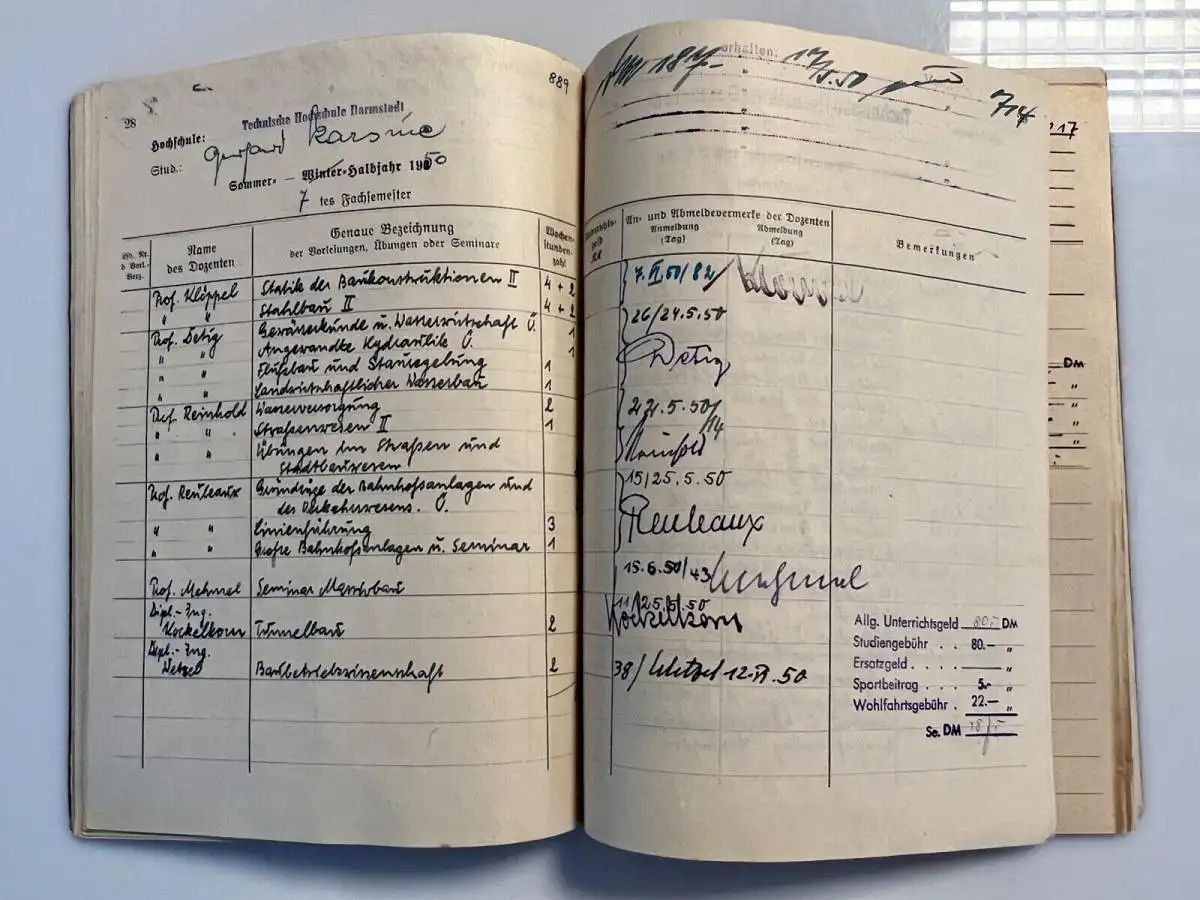 28
889
Technische Hochschule Darmstadt
Hochschule:
Stud.: Gerhard
Sommer- — Winter-Halbjahr 1950
7 tes Fachsemester
Lfd. Nr. d Vorl.-Verz.
Name des Dozenten
Genaue Bezeichnung der Vorlesungen, Übungen oder Seminare
Wochen-stunden-zahl
Prof. Klöppel Statik der Baukonstruktionen II 4 + 2
" " Stahlbau II 4 + 2
Prof. Detig Gewässerkunde u. Wasserwirtschaft Ü. 1
" " Angewandte Hydraulik Ü. 1
" " Flußbau und Stauregelung 1
" " Landwirtschaftlicher Wasserbau 1
Prof. Reinhold Wasserversorgung 2
" " Straßenwesen II 1
" " Übungen im Straßen und
Stadtbauwesen
Prof. Reuleaux Grundzüge der Bahnhofsanlagen und
des Verkehrswesens. Ü.
" " Linienführung 3
" " Große Bahnhofsanlagen u. Seminar 1
Prof. Mehmel Seminar Massivbau
Dipl.-Ing.
Kockelkorn Tunnelbau 2
Dipl.-Ing.
Wetzel Baubetriebswissenschaft 2
erhalten:
187,-
17/5.50
714
An- und Abmeldevermerke der Dozenten
Anmeldung (Tag)
Abmeldung (Tag)
Bemerkungen
7. VI. 50/82
26/24.5.50
Detig
22.5.50/
14
Reinhold
15/25.5.50
Reuleaux
15.6.50/43 Mehmel
11/25.5.50
Kockelkorn
38/ Wetzel 12.VI.50
Allg. Unterrichtsgeld 80.- DM
Studiengebühr . . 80.— "
Ersatzgeld . . . "
Sportbeitrag . . . 5.- "
Wohlfahrtsgebühr . 22.— "
Se. DM 187.-
17
DM
"
"
"